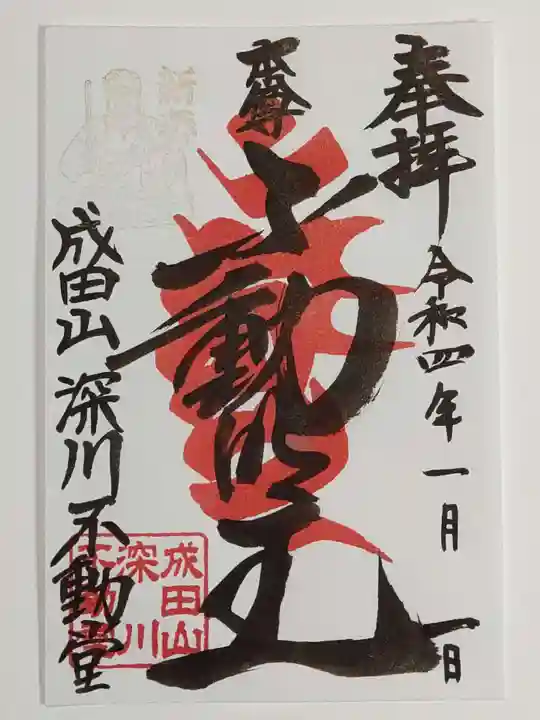 奉拝
令和四年 一月 一日
本尊
不動明王
成田山 深川不動堂
成田山
深川
不動堂